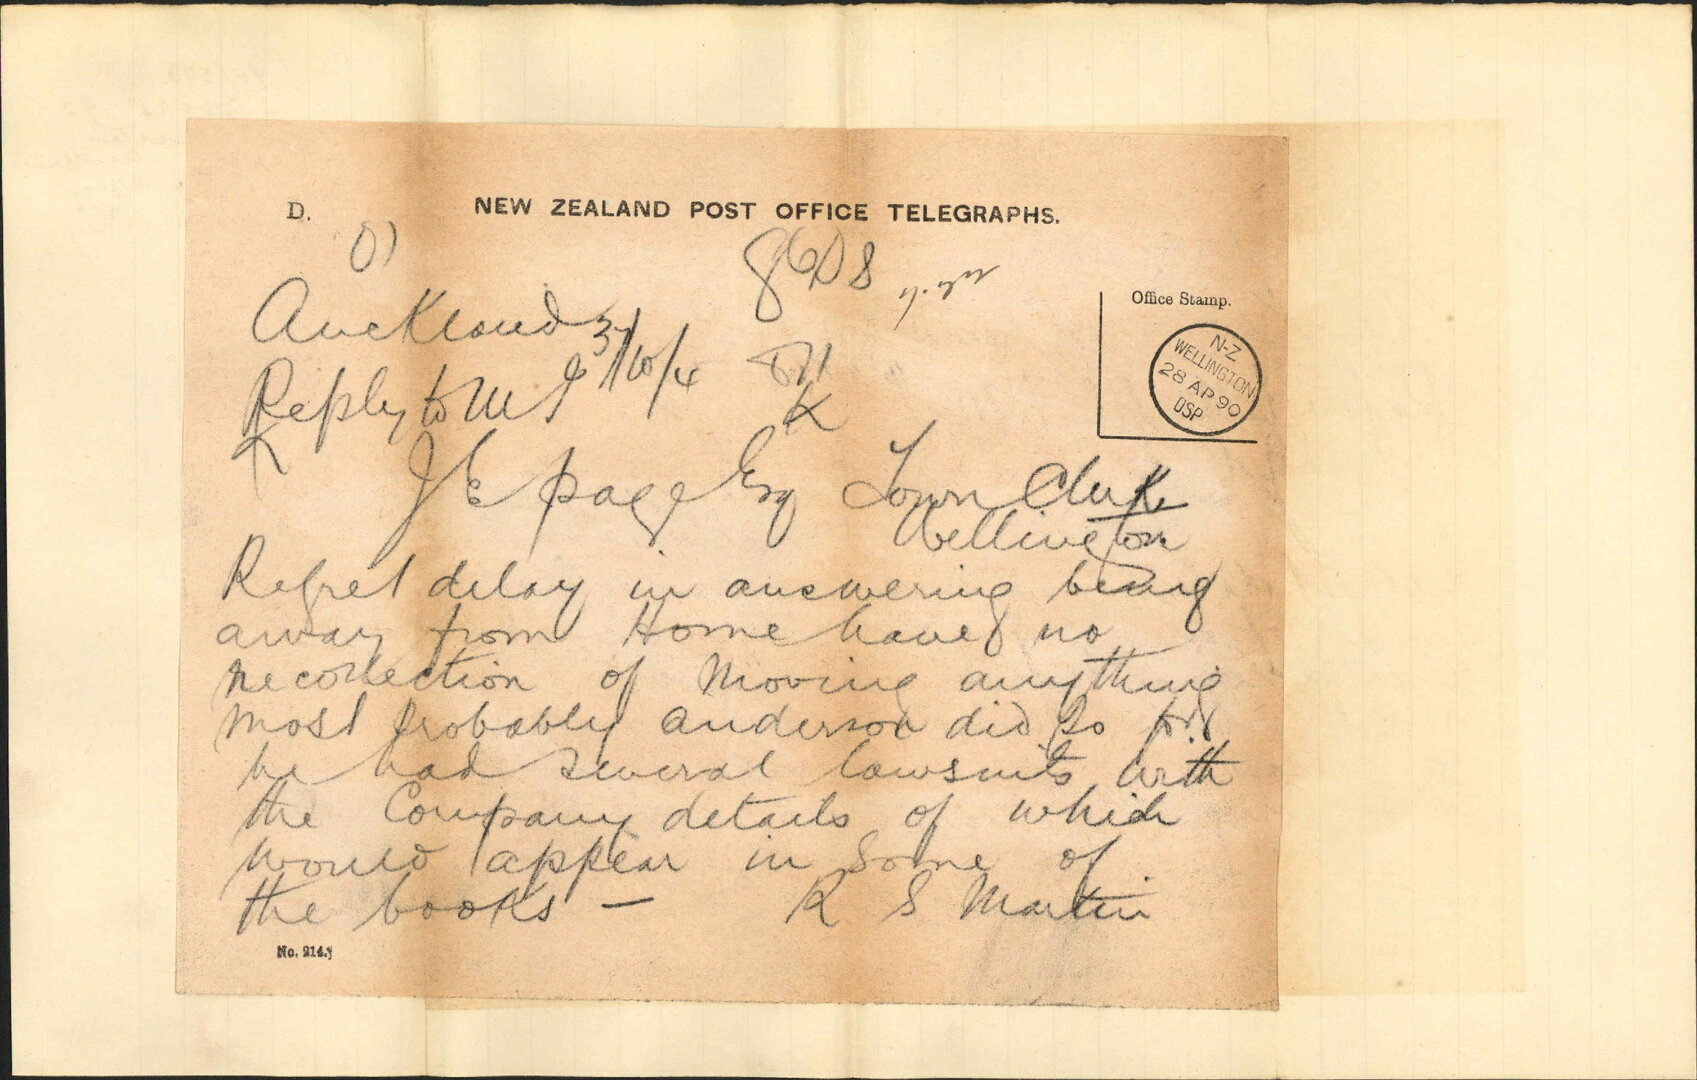 D. NEW ZEALAND POST OFFICE TELEGRAPHS.
Auckland
Reply to
J E page Esq Town Clerk
Wellington
Office Stamp.
N-Z
WELLINGTON
28 AP 90
DSP
Regret delay in answering being
away from Home have no
recollection of Moving anything
most probably anderson did so for
he had several lawsuits with
the Company details of which
would appear in some of
the books — R S Martin
No. 214.